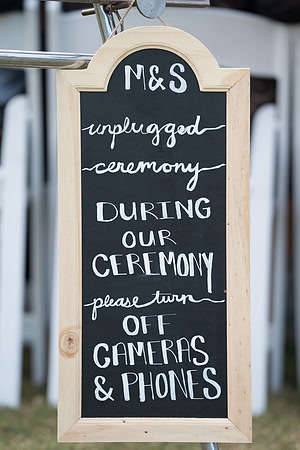 M&S
unplugged
ceremony
DURING
OUR
CEREMONY
please turn
OFF
CAMERAS
& PHONES